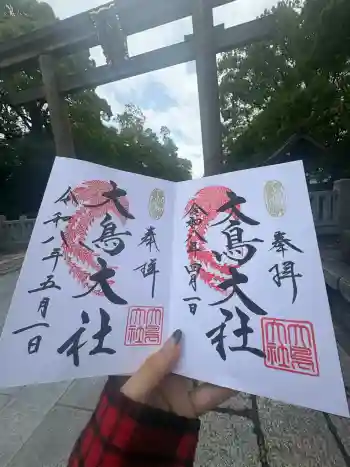 奉拝
大鳥大社
大鳥
大社
令和八年四月一日
奉拝
大鳥大社
大鳥
大社
令和八年五月一日